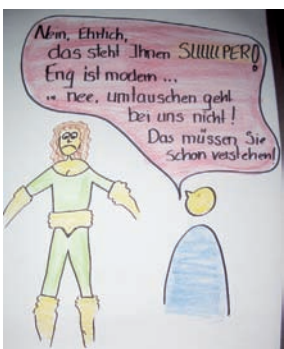 Nein, Ehrlich,
das steht Ihnen SUUUUPER!
Eng ist modern ...
... nee, umtauschen geht
bei uns nicht!
Das müssen Sie
schon verstehen!